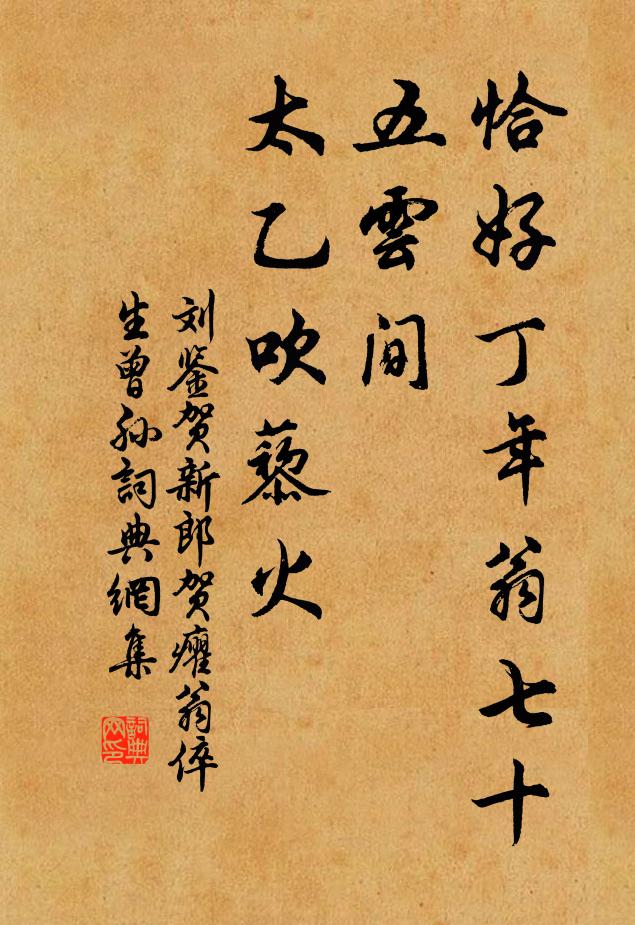 恰好丁年翁七十
五雲間
太乙吹藜火
刘鉴贺新郎贺癯翁倅
生曾孙詞典網集
詞典网印